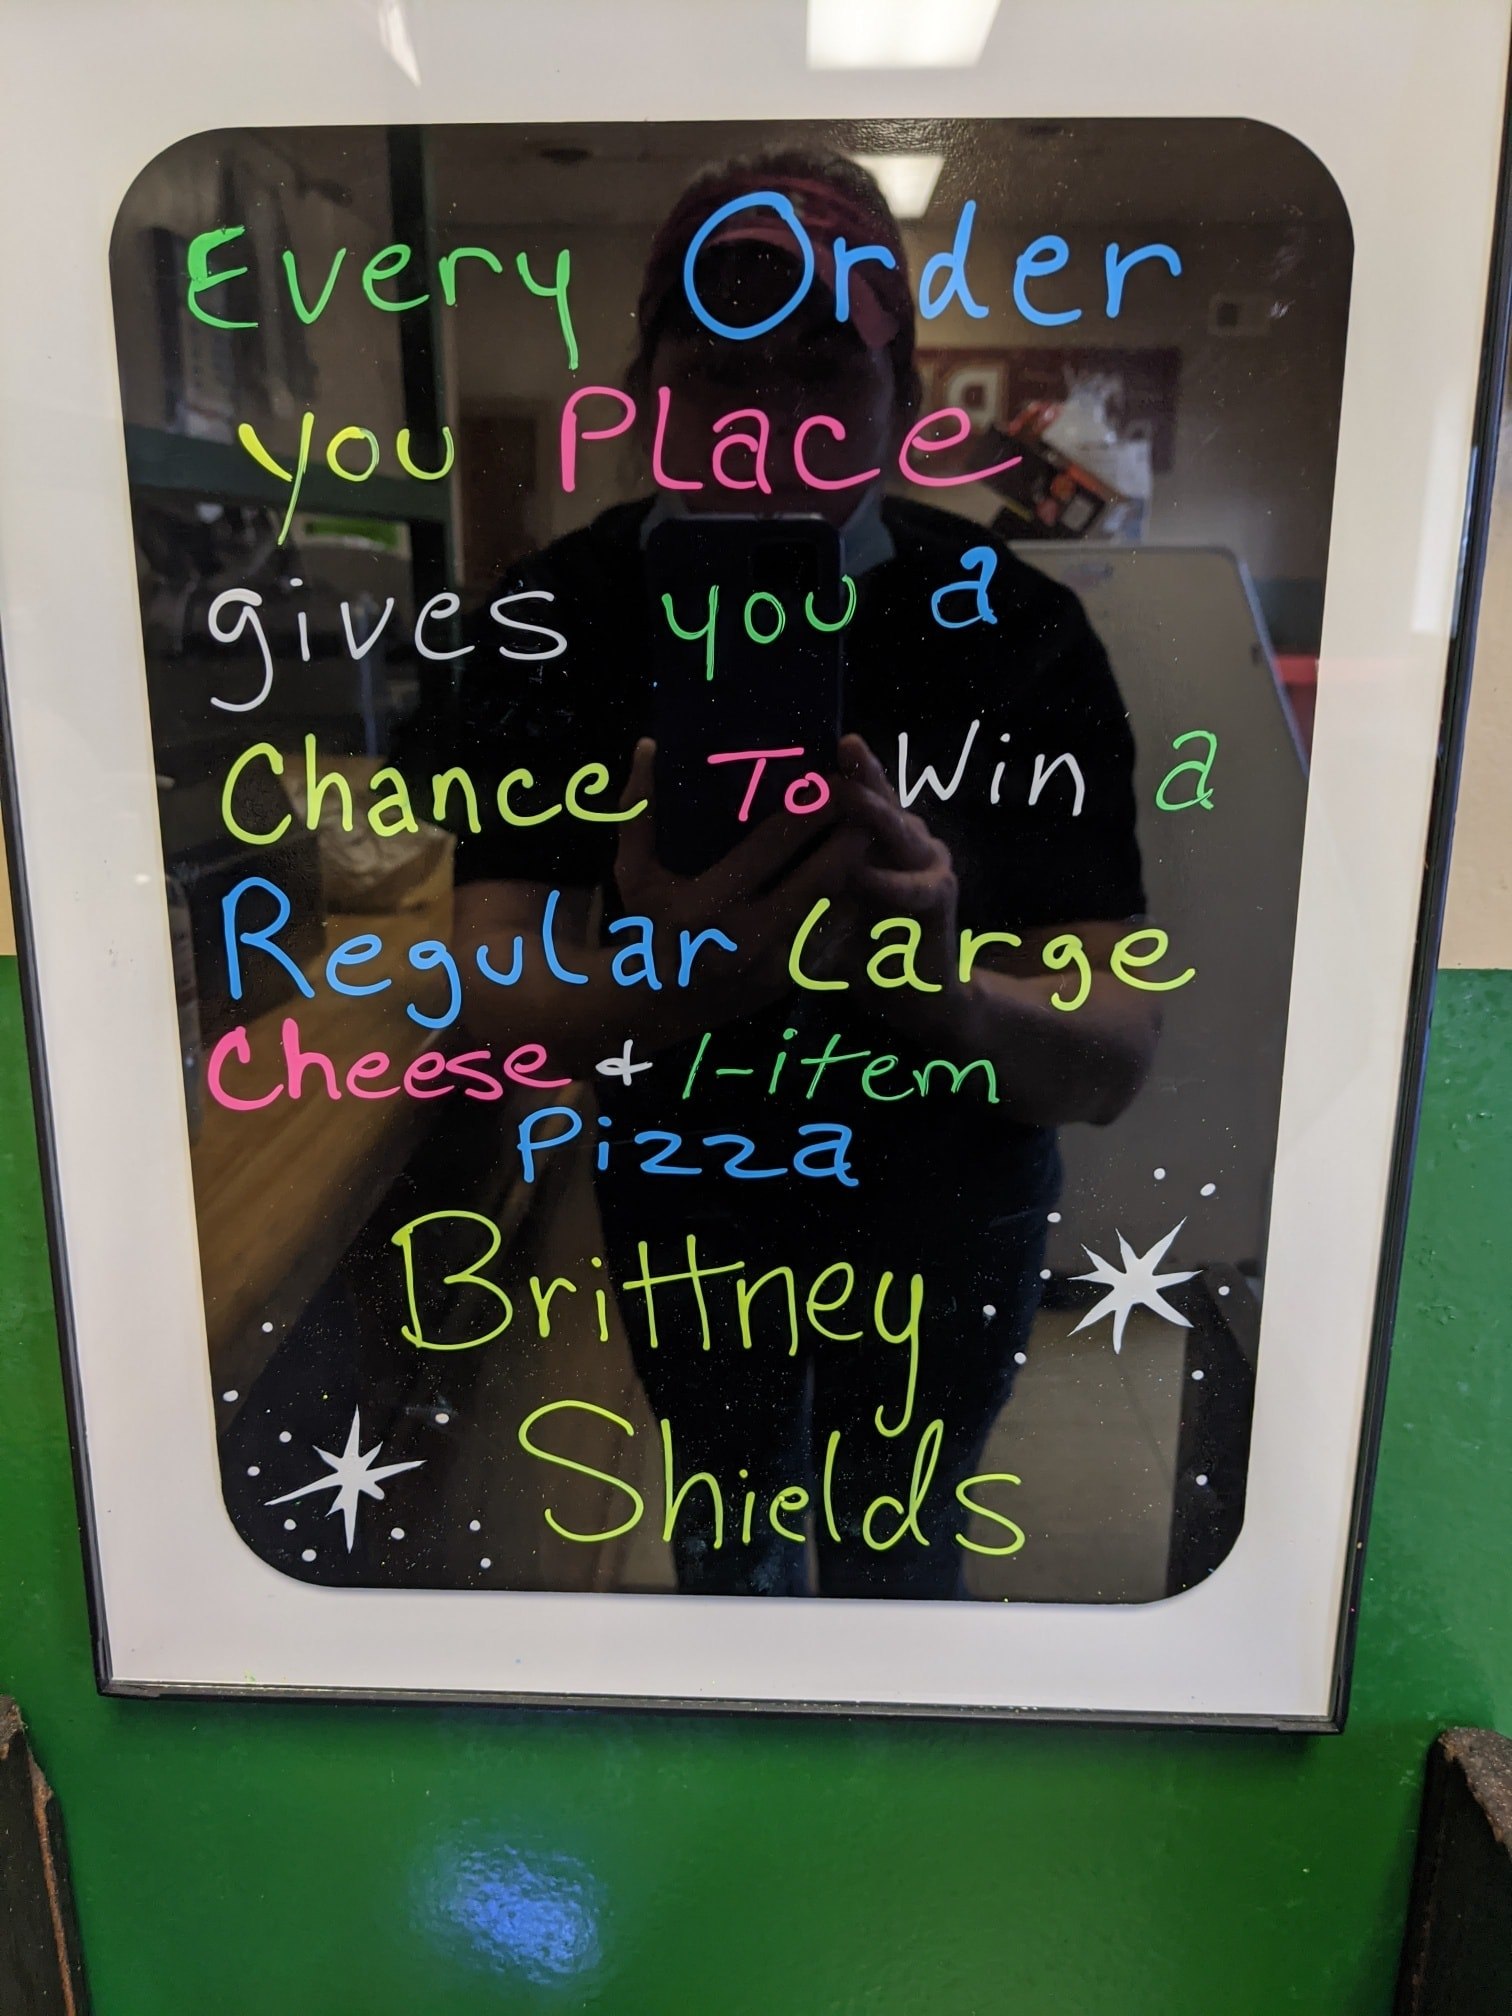 Every Order
you Place
gives you a
Chance To Win a
Regular Large
Cheese & 1-item
Pizza
Brittney
Shields